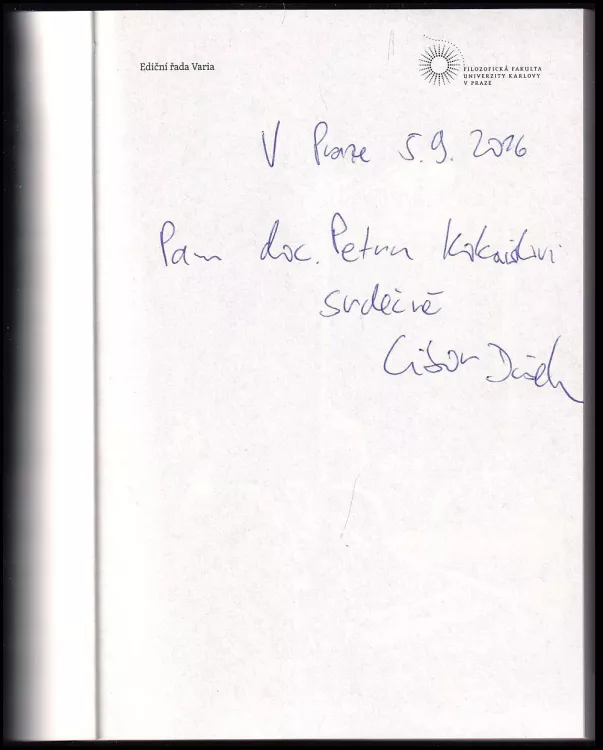 Ediční řada Varia
FILOZOFICKÁ FAKULTA
UNIVERZITY KARLOVY
V PRAZE
V Praze 5.9. 2016
Panu doc. Petru Kokaislovi
srdečně
Libor Dušek